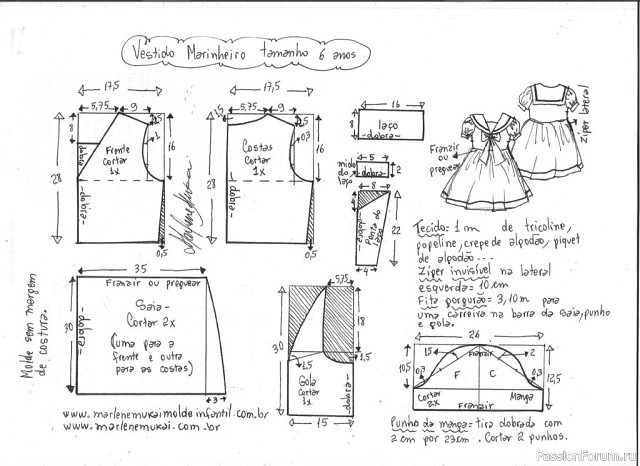 Vestido Marinheiro tamanho 6 anos
17,5
5,75
9
1,5
8
1
16
28
dobra
Frente
Cortar
1x
-dobra-
0,5
17,5
5,75
9
1,5
0,3
16
28
Costas
Cortar
1x
-dobra-
0,5
16
8
laço
-dobra-
5
miolo
do
laço
-dobra-
2
8
-dobra-
Ponta do
laço
22
4
Franzir ou
preguear
Ziper lateral
Tecido = 1 m de tricoline,
popeline, crepe de algodão, piquet
de algodão...
Ziper invisível na lateral
esquerda = 10 cm
Fita gorgurão = 3,10 m para
uma carreira na barra da saia, punho
e gola.
Molde sem margem
de costura.
35
Franzir ou preguear
30
-dobra-
Saia-
Cortar 2x
(uma para a
frente e outra
para as costas)
3
5,75
30
18
1,5
1,5
Gola
Cortar
1x
dobra-
15
26
10,5
15
Franzir
2
0,7
F
C
0,3
12,5
Cortar
2x
Manga
Franzir
www.marlenemukaimoldeinfantil.com.br
www.marlenemukai.com.br
Punho da manga = tira dobrada com
2 cm por 23cm. Cortar 2 punhos.
PassionForum.ru